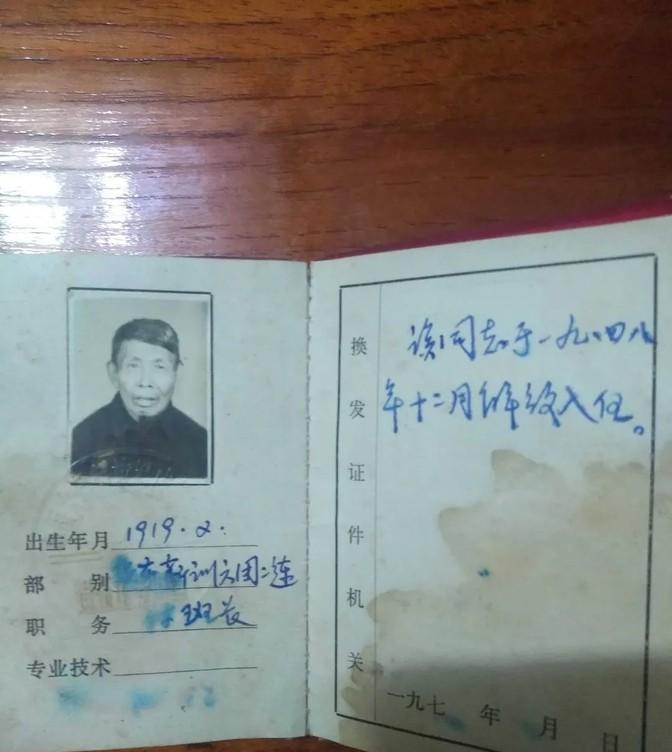 出生年月 1919.2.
部别 训六团二连
职务 班长
专业技术
换发证件机关
该同志于一九四八
年十二月 入伍。
一九七 年 月 日